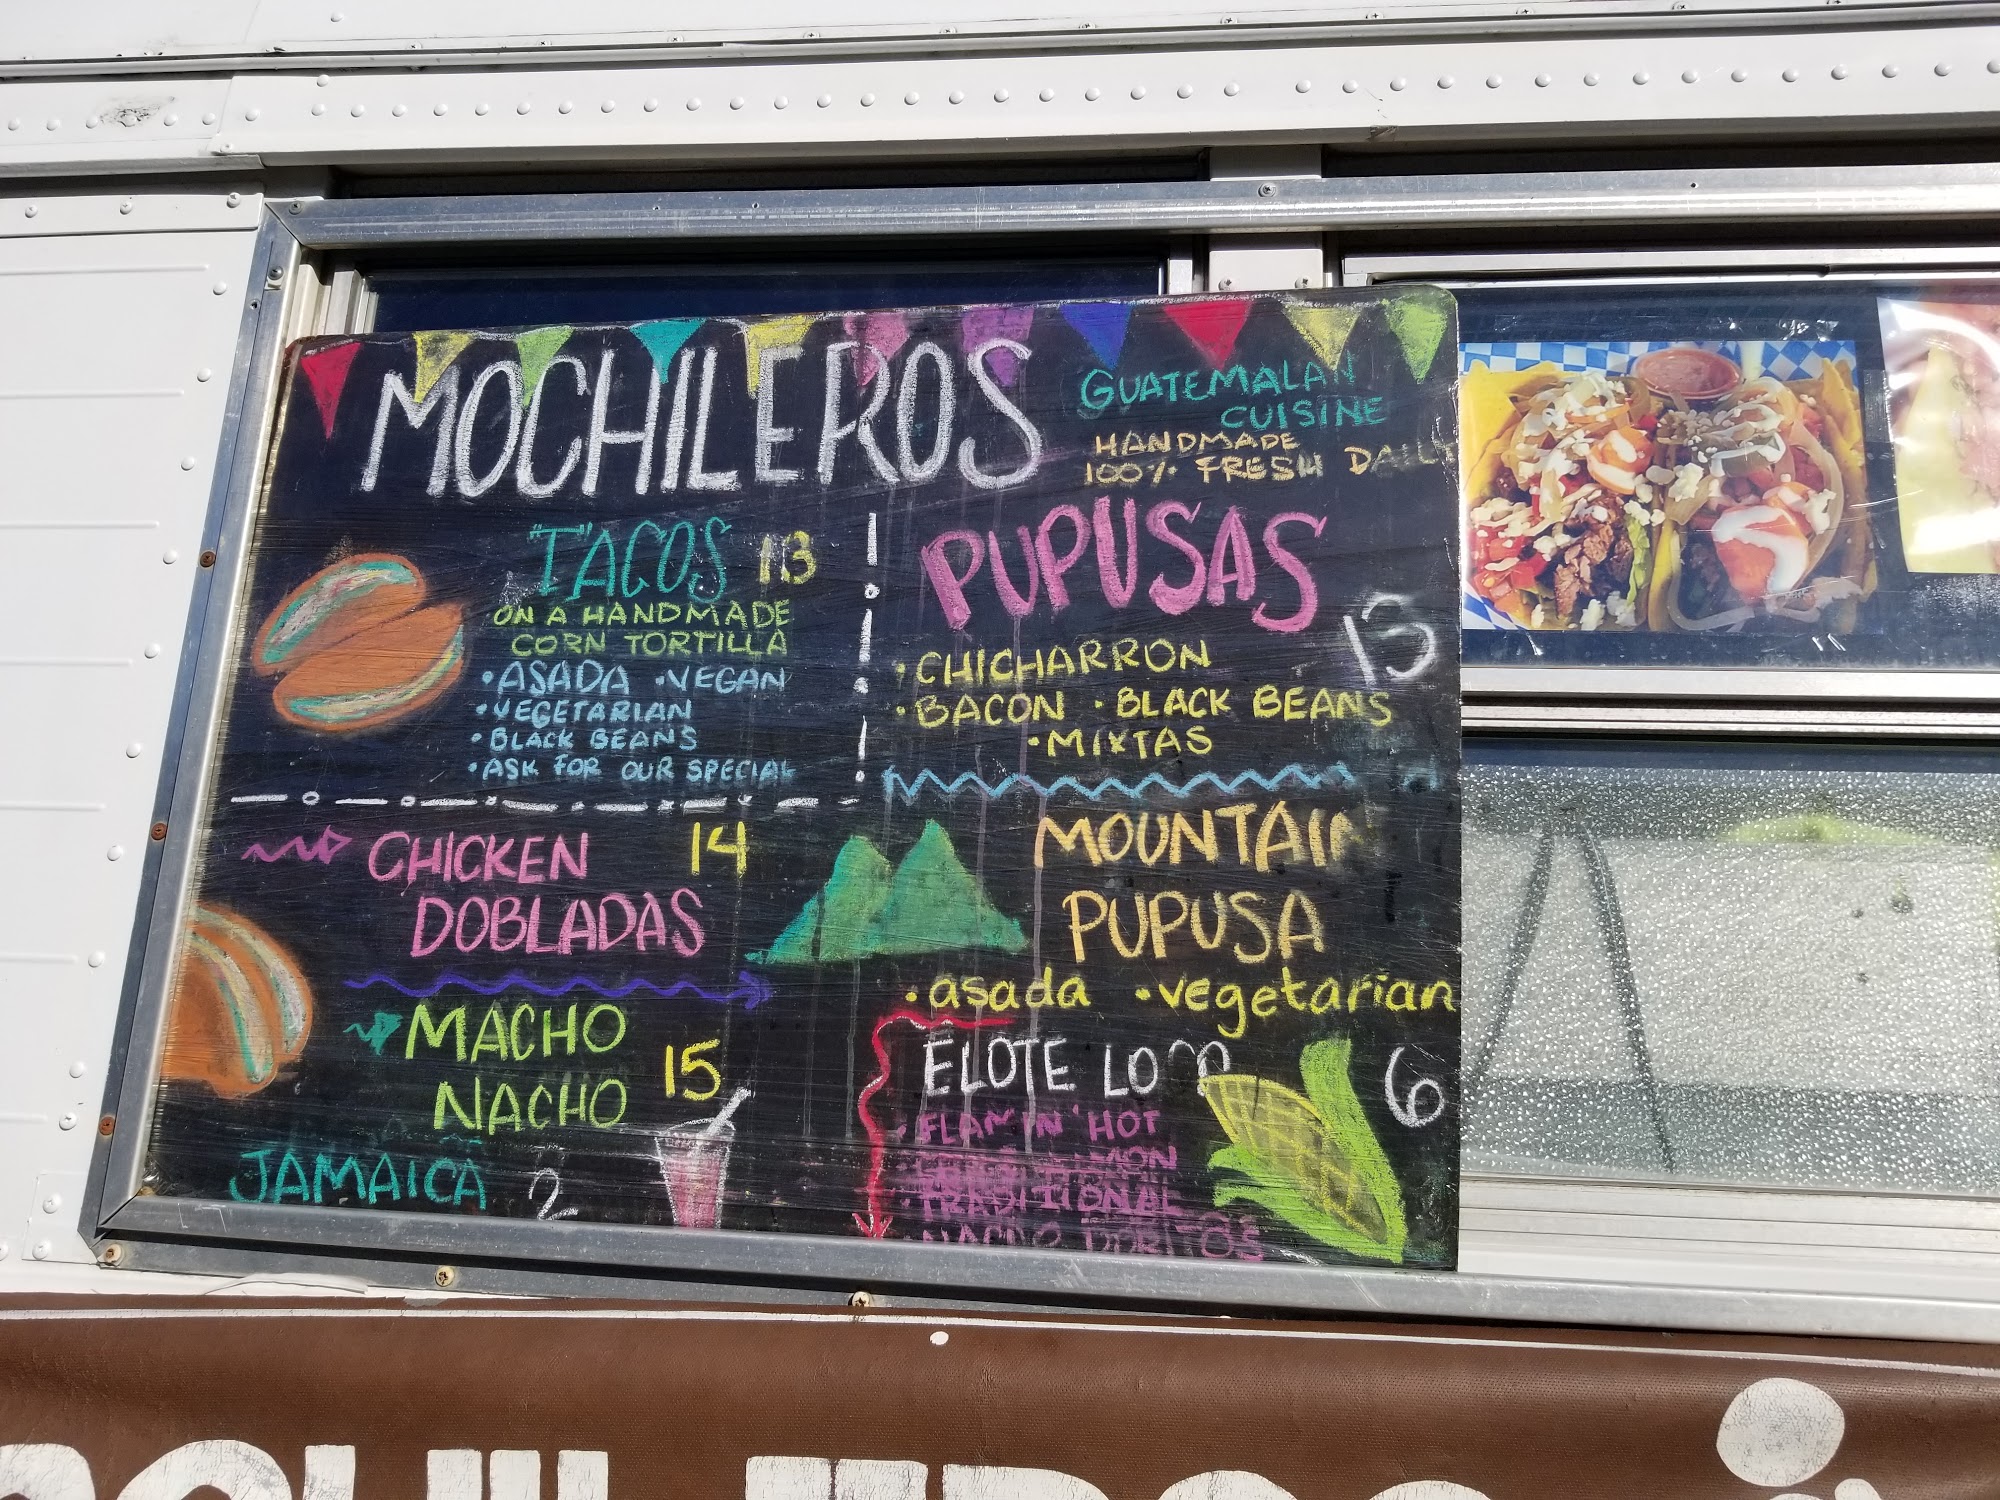 MOCHILEROS
GUATEMALAN
CUISINE
HANDMADE
100% FRESH DAILY
"T"ACOS 13
ON A HANDMADE
CORN TORTILLA
•ASADA •VEGAN
•VEGETARIAN
•BLACK BEANS
•ASK FOR OUR SPECIAL
PUPUSAS
13
•CHICHARRON
•BACON •BLACK BEANS
•MIXTAS
CHICKEN 14
DOBLADAS
MACHO
NACHO 15
JAMAICA 2
MOUNTAIN
PUPUSA
•asada •vegetarian
ELOTE LOCO 6
•FLAMIN' HOT
•TRADITIONAL
NACHO DORITOS